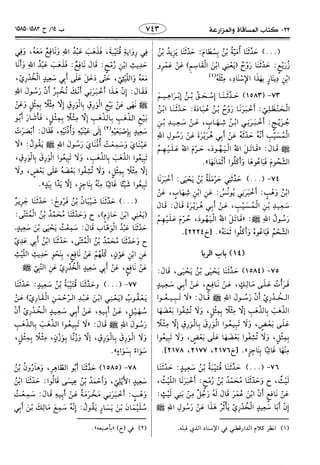 ٢٢- كتاب المساقاة والمزارعة
٧٤٣
ب ١٤/ ح ١٥٨٣-١٥٨٥
(...) حَدَّثَنَا أُمَيَّةُ بْنُ بِسْطَامٍ: حَدَّثَنَا يَزِيدُ بْنُ
زُرَيْعٍ: حَدَّثَنَا رَوْحٌ (يَعْنِي ابْنَ الْقَاسِمِ) عَنْ عَمْرِو
ابْنِ دِينَارٍ بِهَذَا الإِسْنَادِ، مِثْلَهُ(١).
٧٣- (١٥٨٣) حَدَّثَنَا إِسْحَقُ بْنُ إِبْرَاهِيمَ
الْحَنْظَلِيُّ: أَخْبَرَنَا رَوْحُ بْنُ عُبَادَةَ: حَدَّثَنَا ابْنُ
جُرَيْجٍ: أَخْبَرَنِي ابْنُ شِهَابٍ عَنْ سَعِيدِ بْنِ
الْمُسَيَّبِ أَنَّهُ حَدَّثَهُ عَنْ أَبِي هُرَيْرَةَ عَنْ رَسُولِ اللهِ
ﷺ قَالَ: «قَاتَلَ اللهُ الْيَهُودَ، حَرَّمَ اللهُ عَلَيْهِمُ
الشُّحُومَ فَبَاعُوهَا وَأَكَلُوا أَثْمَانَهَا».
٧٤- (...) حَدَّثَنِي حَرْمَلَةُ بْنُ يَحْيَى: أَخْبَرَنَا
ابْنُ وَهْبٍ: أَخْبَرَنِي يُونُسُ عَنِ ابْنِ شِهَابٍ، عَنْ
سَعِيدِ بْنِ الْمُسَيَّبِ، عَنْ أَبِي هُرَيْرَةَ قَالَ: قَالَ
رَسُولُ اللهِ ﷺ: «قَاتَلَ اللهُ الْيَهُودَ، حُرِّمَ عَلَيْهِمُ
الشُّحُومُ فَبَاعُوهُ وَأَكَلُوا ثَمَنَهُ». [خ٢٢٢٤].
(١٤) باب الربا
٧٥- (١٥٨٤) حَدَّثَنَا يَحْيَى بْنُ يَحْيَى، قَالَ:
قَرَأْتُ عَلَى مَالِكٍ، عَنْ نَافِعٍ، عَنْ أَبِي سَعِيدٍ
الْخُدْرِيِّ أَنَّ رَسُولَ اللهِ ﷺ قَالَ: «لَا تَبِيعُوا
الذَّهَبَ بِالذَّهَبِ إِلَّا مِثْلًا بِمِثْلٍ، وَلَا تُشِفُّوا بَعْضَهَا
عَلَى بَعْضٍ، وَلَا تَبِيعُوا الْوَرِقَ بِالْوَرِقِ إِلَّا مِثْلًا
بِمِثْلٍ، وَلَا تُشِفُّوا بَعْضَهَا عَلَى بَعْضٍ، وَلَا تَبِيعُوا
مِنْهَا غَائِبًا بِنَاجِزٍ». [خ٢١٧٦، ٢١٧٧، ٢١٧٨].
٧٦- (...) حَدَّثَنَا قُتَيْبَةُ بْنُ سَعِيدٍ: حَدَّثَنَا
لَيْثٌ، ح وَحَدَّثَنَا مُحَمَّدُ بْنُ رُمْحٍ: أَخْبَرَنَا اللَّيْثُ،
عَنْ نَافِعٍ أَنَّ ابْنَ عُمَرَ قَالَ لَهُ رَجُلٌ مِنْ بَنِي لَيْثٍ:
إِنَّ أَبَا سَعِيدٍ الْخُدْرِيَّ يَأْثُرُ هَذَا عَنْ رَسُولِ اللهِ ﷺ
فِي رِوَايَةِ قُتَيْبَةَ، فَذَهَبَ عَبْدُ اللهِ وَنَافِعٌ مَعَهُ، وَفِي
حَدِيثِ ابْنِ رُمْحٍ: قَالَ نَافِعٌ: فَذَهَبَ عَبْدُ اللهِ وَأَنَا
مَعَهُ وَاللَّيْثِيُّ، حَتَّى دَخَلَ عَلَى أَبِي سَعِيدٍ الْخُدْرِيِّ،
فَقَالَ: إِنَّ هَذَا أَخْبَرَنِي أَنَّكَ تُخْبِرُ أَنَّ رَسُولَ اللهِ
ﷺ نَهَى عَنْ بَيْعِ الْوَرِقِ بِالْوَرِقِ إِلَّا مِثْلًا بِمِثْلٍ وَعَنْ
بَيْعِ الذَّهَبِ بِالذَّهَبِ إِلَّا مِثْلًا بِمِثْلٍ، فَأَشَارَ أَبُو
سَعِيدٍ بِإِصْبَعَيْهِ(٢) إِلَى عَيْنَيْهِ وَأُذُنَيْهِ، فَقَالَ: أَبْصَرَتْ
عَيْنَايَ وَسَمِعَتْ أُذُنَايَ رَسُولَ اللهِ ﷺ يَقُولُ: «لَا
تَبِيعُوا الذَّهَبَ بِالذَّهَبِ، وَلَا تَبِيعُوا الْوَرِقَ بِالْوَرِقِ،
إِلَّا مِثْلًا بِمِثْلٍ، وَلَا تُشِفُّوا بَعْضَهُ عَلَى بَعْضٍ، وَلَا
تَبِيعُوا شَيْئًا غَائِبًا مِنْهُ بِنَاجِزٍ، إِلَّا يَدًا بِيَدٍ».
(...) حَدَّثَنَا شَيْبَانُ بْنُ فَرُّوخَ: حَدَّثَنَا جَرِيرٌ
(يَعْنِي ابْنَ حَازِمٍ)، ح وَحَدَّثَنَا مُحَمَّدُ بْنُ الْمُثَنَّى:
حَدَّثَنَا عَبْدُ الْوَهَّابِ قَالَ: سَمِعْتُ يَحْيَى بْنَ سَعِيدٍ،
ح وَحَدَّثَنَا مُحَمَّدُ بْنُ الْمُثَنَّى: حَدَّثَنَا ابْنُ أَبِي عَدِيٍّ
عَنِ ابْنِ عَوْنٍ، كُلُّهُمْ عَنْ نَافِعٍ، بِنَحْوِ حَدِيثِ اللَّيْثِ
عَنْ نَافِعٍ، عَنْ أَبِي سَعِيدٍ الْخُدْرِيِّ عَنِ النَّبِيِّ ﷺ
٧٧- (...) وَحَدَّثَنَا قُتَيْبَةُ بْنُ سَعِيدٍ: حَدَّثَنَا
يَعْقُوبُ (يَعْنِي ابْنَ عَبْدِ الرَّحْمَنِ الْقَارِيَّ) عَنْ
سُهَيْلٍ، عَنْ أَبِيهِ، عَنْ أَبِي سَعِيدٍ الْخُدْرِيِّ أَنَّ
رَسُولَ اللهِ ﷺ قَالَ: «لَا تَبِيعُوا الذَّهَبَ بِالذَّهَبِ
وَلَا الْوَرِقَ بِالْوَرِقِ، إِلَّا وَزْنًا بِوَزْنٍ، مِثْلًا بِمِثْلٍ،
سَوَاءً بِسَوَاءٍ».
٧٨- (١٥٨٥) حَدَّثَنَا أَبُو الطَّاهِرِ وَهَارُونُ بْنُ
سَعِيدٍ الْأَيْلِيُّ، وَأَحْمَدُ بْنُ عِيسَى قَالُوا: حَدَّثَنَا ابْنُ
وَهْبٍ: أَخْبَرَنِي مَخْرَمَةُ عَنْ أَبِيهِ قَالَ: سَمِعْتُ
سُلَيْمَانَ بْنَ يَسَارٍ يَقُولُ: إِنَّهُ سَمِعَ مَالِكَ بْنَ أَبِي
(١) انظر كلام الدارقطني في الإسناد الذي قبله.
(٢) في (خ) «بأصبعه».